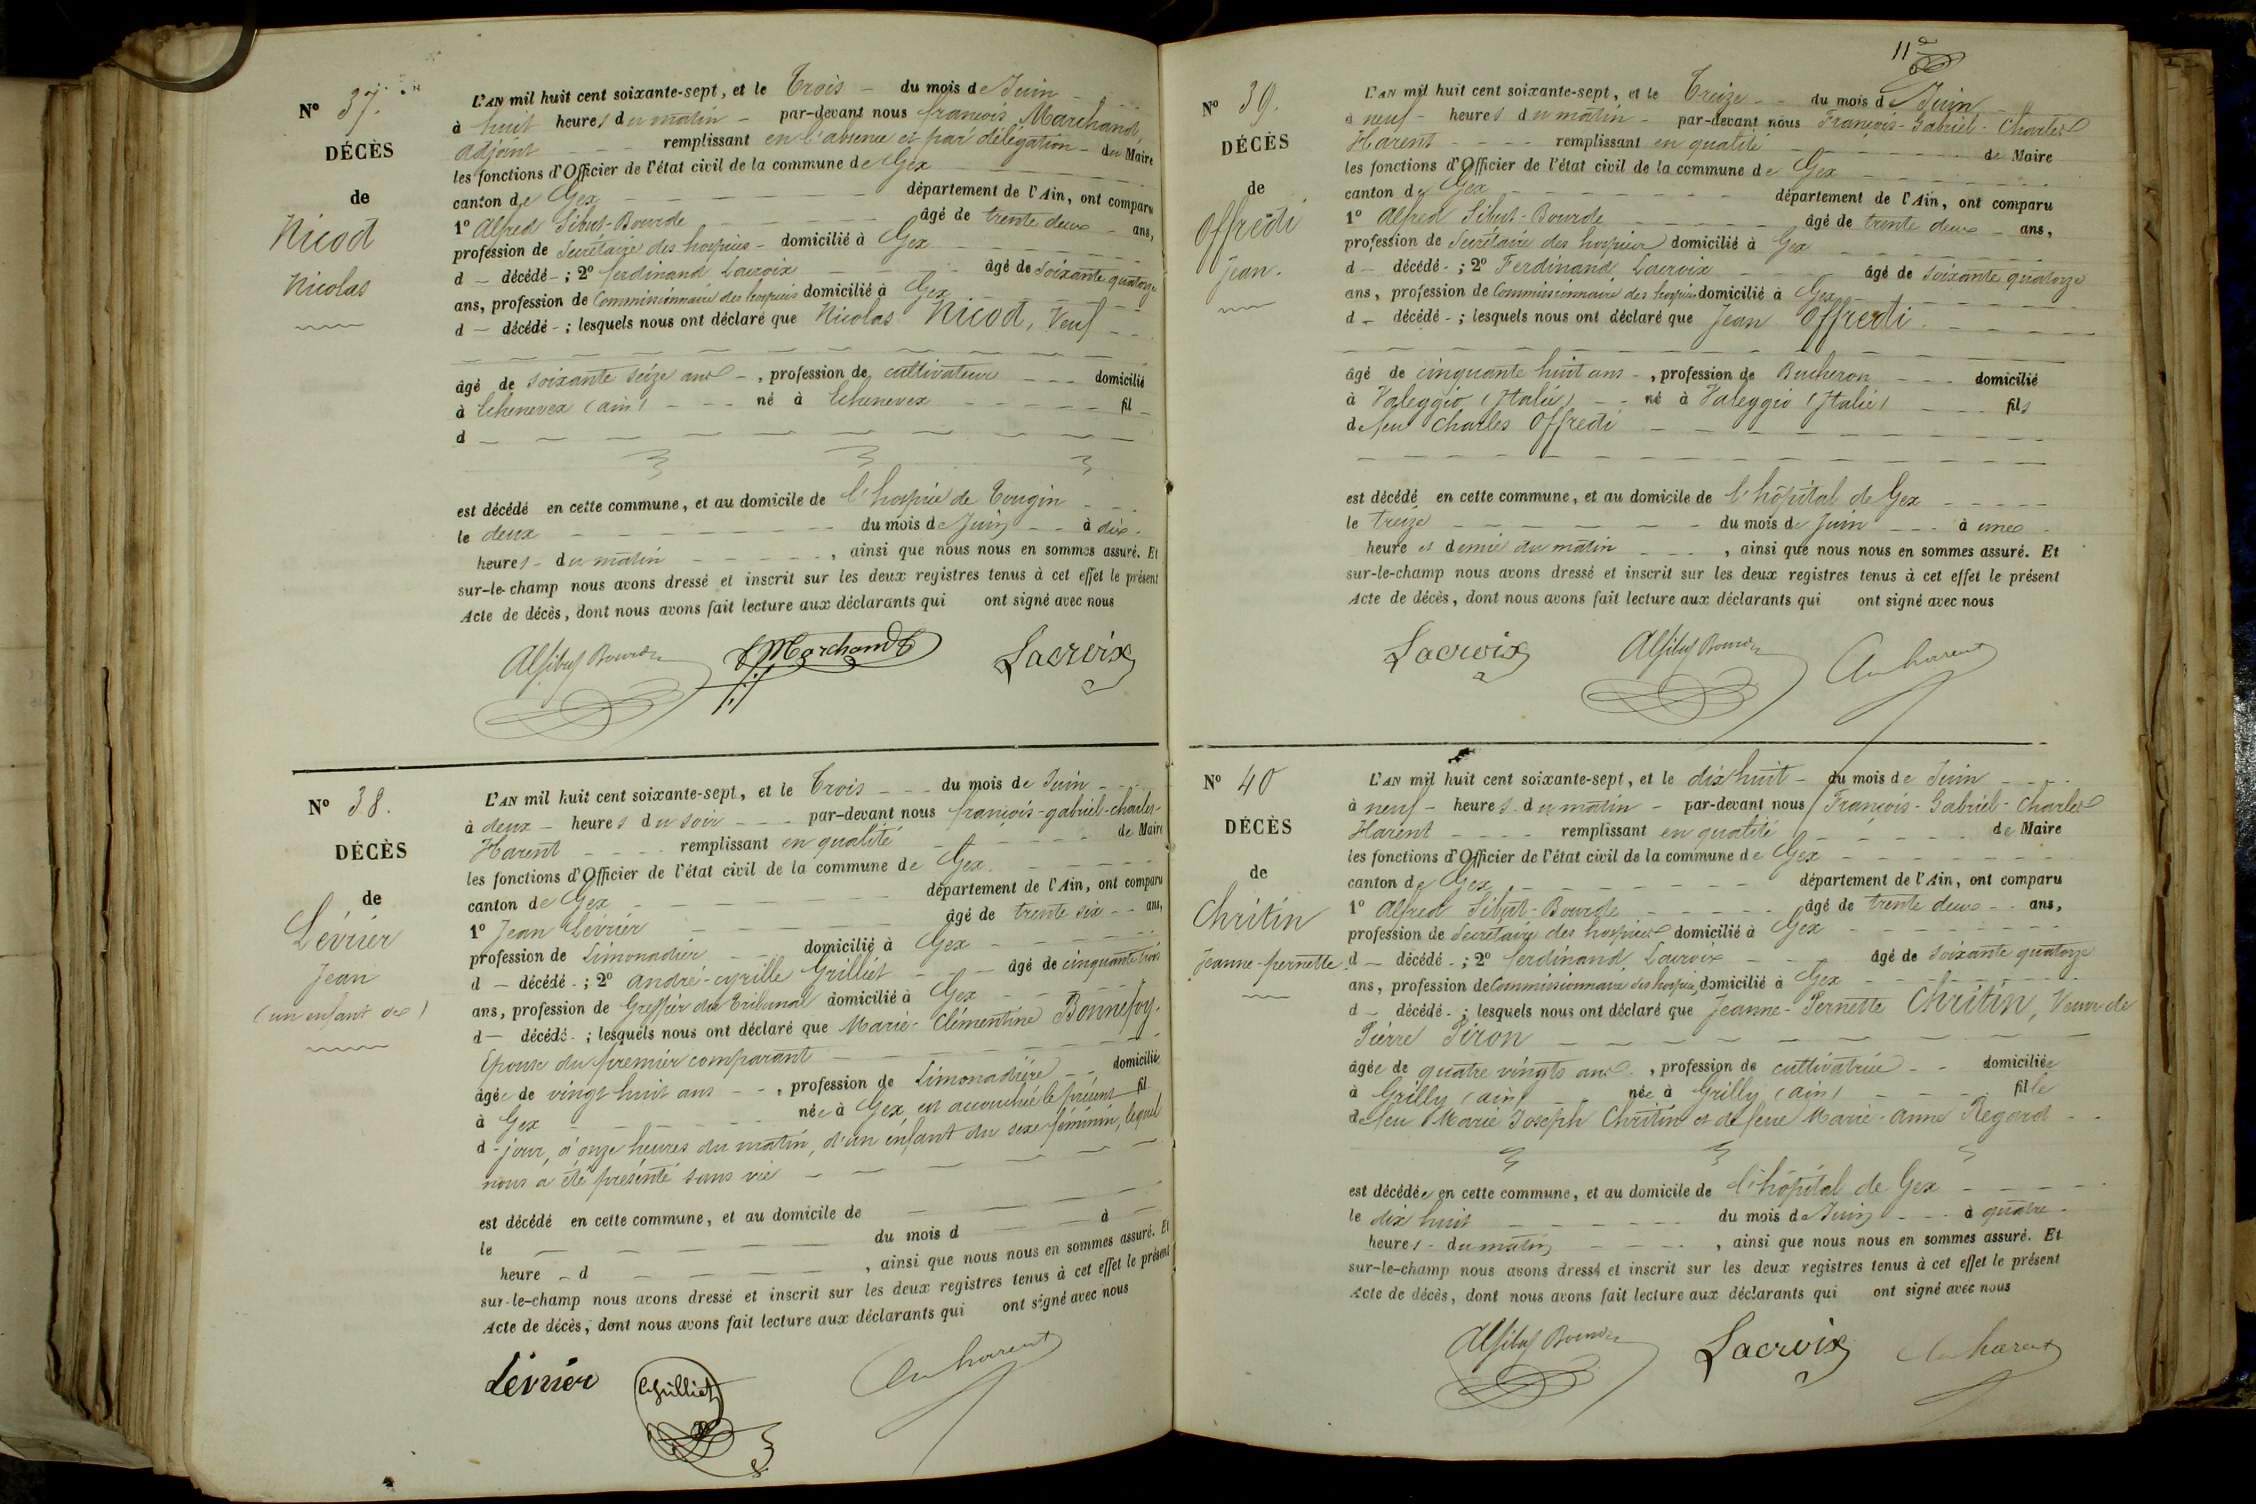 N° 37.
DÉCÈS
de
Nicod
Nicolas
L'AN mil huit cent soixante-sept, et le Trois - du mois de Juin
à huit heures du matin - par-devant nous françois Marchand,
adjoint - - - remplissant en l'absence et par délégation - du Maire
les fonctions d'Officier de l'état civil de la commune de Gex
canton de Gex - - - département de l'Ain, ont comparu
1° Alfred Sibut-Bourde - - - âgé de trente deux - ans,
profession de Secrétaire des hospices - domicilié à Gex
d - décédé - ; 2° ferdinand Lacroix - - - âgé de soixante quatorze
ans, profession de Commissionnaire des hospices domicilié à Gex
d - décédé - ; lesquels nous ont déclaré que Nicolas Nicod, Veuf - -
âgé de soixante seize ans - , profession de cultivateur - - - domicilié
à Echenevex (ain) - - - né à Echenevex - - - fil -
d - - -
est décédé en cette commune, et au domicile de l'hospice de Tougin - - -
le deux - - - du mois de Juin - - à dix -
heures - du matin - - - , ainsi que nous nous en sommes assuré. Et
sur-le-champ nous avons dressé et inscrit sur les deux registres tenus à cet effet le présent
Acte de décès, dont nous avons fait lecture aux déclarants qui ont signé avec nous
Alf Sibut Bourde F Marchand Lacroix
N° 38.
DÉCÈS
de
Lévrier
Jean
(un enfant de)
L'AN mil huit cent soixante-sept, et le Trois - - - du mois de Juin - - -
à deux - heures du soir - - - par-devant nous françois-gabriel-charles-
Harent - - - remplissant en qualité - - - de Maire
les fonctions d'Officier de l'état civil de la commune de Gex
canton de Gex - - - département de l'Ain, ont comparu
1° Jean Lévrier - - - âgé de trente six - - ans,
profession de Limonadier - - domicilié à Gex - - -
d - décédé - ; 2° andré-cyrille Grilliet - - - âgé de cinquante trois
ans, profession de Greffier du Tribunal domicilié à Gex - - -
d - décédé - ; lesquels nous ont déclaré que Marie-Clémentine Bonnefoy.
Epouse du premier comparant - - -
âgée de vingt huit ans - - , profession de Limonadière - - domiciliée
à Gex - - - née à Gex est accouchée le présent fil
d - jour, à onze heures du matin, d'un enfant du sexe féminin, lequel
nous a été présenté sans vie - - -
est décédé en cette commune, et au domicile de - - -
le - - - du mois d - - - à -
heure - d - - - , ainsi que nous nous en sommes assuré. Et
sur-le-champ nous avons dressé et inscrit sur les deux registres tenus à cet effet le présent
Acte de décès, dont nous avons fait lecture aux déclarants qui ont signé avec nous
Lévrier Grilliet Harent
11e
N° 39.
DÉCÈS
de
Offredi
Jean.
L'AN mil huit cent soixante-sept, et le Treize - - du mois de Juin
à neuf - heures du matin - par-devant nous François-Gabriel-Charles
Harent - - - - remplissant en qualité - - - de Maire
les fonctions d'Officier de l'état civil de la commune de Gex - - -
canton de Gex - - - département de l'Ain, ont comparu
1° Alfred Sibut-Bourde - - - âgé de trente deux - ans,
profession de Secrétaire des hospices domicilié à Gex - - -
d - décédé - ; 2° Ferdinand Lacroix - - - âgé de soixante quatorze
ans, profession de Commissionnaire des hospices domicilié à Gex
d - décédé - ; lesquels nous ont déclaré que Jean Offredi - - -
âgé de cinquante huit ans - , profession de Bucheron - - - domicilié
à Valeggio (Italie) - - né à Valeggio (Italie) - - - fils
de feu Charles Offredi - - -
est décédé en cette commune, et au domicile de l'hôpital de Gex - - -
le treize - - - du mois de Juin - - - à une -
heure et demie du matin - - - , ainsi que nous nous en sommes assuré. Et
sur-le-champ nous avons dressé et inscrit sur les deux registres tenus à cet effet le présent
Acte de décès, dont nous avons fait lecture aux déclarants qui ont signé avec nous
Lacroix Alf Sibut Bourde Harent
N° 40
DÉCÈS
de
Chritin
Jeanne-pernette
L'AN mil huit cent soixante-sept, et le dix huit - du mois de Juin - - -
à neuf - heures du matin - par-devant nous François-Gabriel-Charles
Harent - - - - remplissant en qualité - - - de Maire
les fonctions d'Officier de l'état civil de la commune de Gex - - -
canton de Gex - - - département de l'Ain, ont comparu
1° Alfred Sibut-Bourde - - - âgé de trente deux - - ans,
profession de Secrétaire des hospices domicilié à Gex - - -
d - décédé - ; 2° ferdinand Lacroix - - âgé de soixante quatorze
ans, profession de Commissionnaire des hospices domicilié à Gex - - -
d - décédé - ; lesquels nous ont déclaré que Jeanne-Pernette Chritin, Veuve de
Pierre Piron - - -
âgée de quatre vingts ans - , profession de cultivatrice - - domiciliée
à Grilly (ain) - - née à Grilly (ain) - - - fille
de feu Marie Joseph Chritin et de feue Marie-anne Regard - -
est décédée en cette commune, et au domicile de l'hôpital de Gex - - -
le dix huit - - - du mois de Juin - - - à quatre -
heures - du matin - - - , ainsi que nous nous en sommes assuré. Et
sur-le-champ nous avons dressé et inscrit sur les deux registres tenus à cet effet le présent
Acte de décès, dont nous avons fait lecture aux déclarants qui ont signé avec nous
Alf Sibut Bourde Lacroix Harent